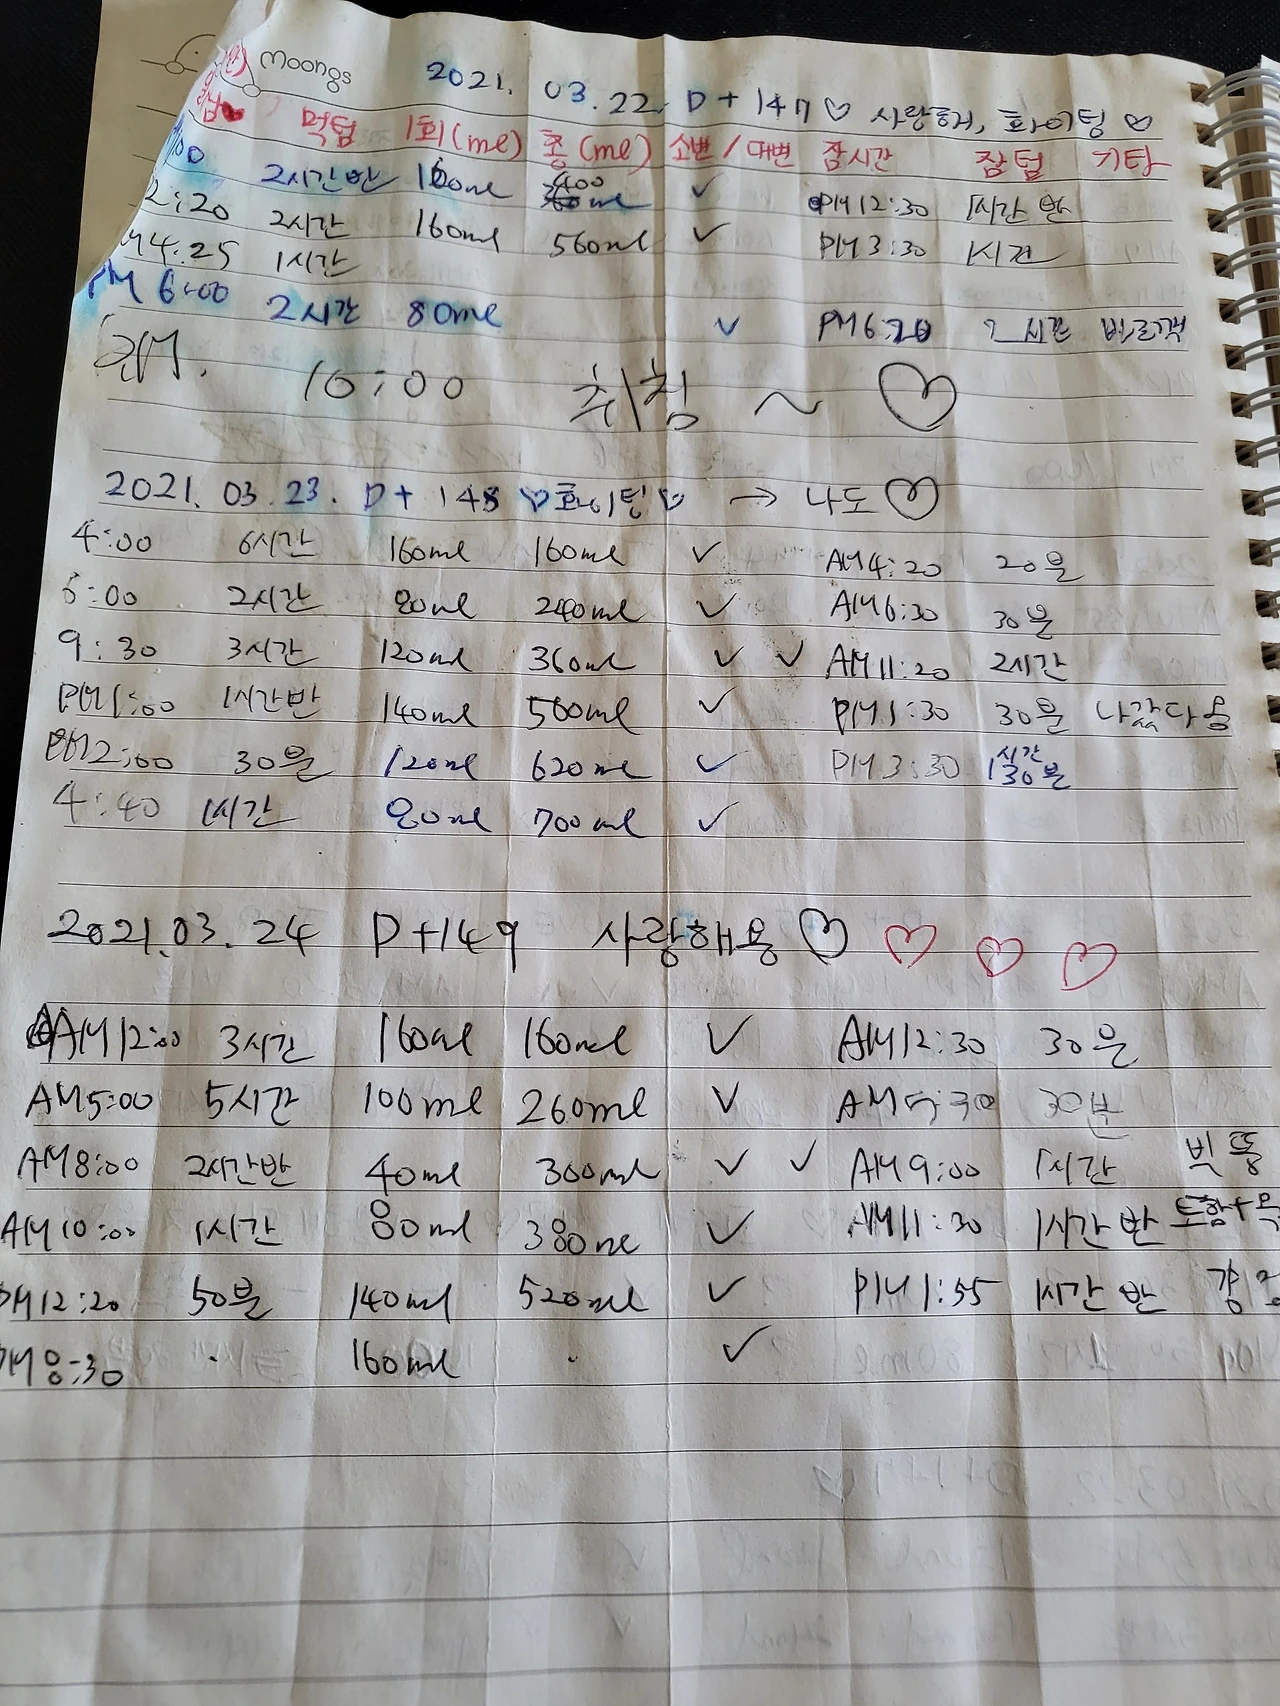 moongs
2021. 03.22. D+147♡ 사랑해, 화이팅♡
먹텀 1회(ml) 총(ml) 소변/대변 잠시간 잠텀 기탕
:00 2시간반 160ml 400 ✓ PM12:30 1시간 반
2:20 2시간 160ml 560ml ✓ PM3:30 1시간
M4:25 1시간
PM 6:00 2시간 80ml ✓ PM6: 2시간
10:00 취침~♡
2021. 03.23. D+148 ♡화이팅♡ → 나도♡
4:00 6시간 160ml 160ml ✓ AM4:20 20분
6:00 2시간 80ml 240ml ✓ AM6:30 30분
9:30 3시간 120ml 360ml ✓ ✓ AM11:20 2시간
PM1:00 1시간반 140ml 500ml ✓ PM1:30 30분 나갔다옹
PM2:00 30분 120ml 620ml ✓ PM3:30 1시간 30분
4:40 1시간 80ml 700ml ✓
2021.03.24 D+149 사랑해용♡♡♡♡
AM12:00 3시간 160ml 160ml ✓ AM12:30 30분
AM5:00 5시간 100ml 260ml ✓ AM5:30 30분
AM8:00 2시간반 40ml 300ml ✓ ✓ AM9:00 1시간 빅똥
AM10:00 1시간 80ml 380ml ✓ AM11:30 1시간 반
PM12:20 50분 140ml 520ml ✓ PM1:55 1시간 반
PM8:30 · 160ml · ✓